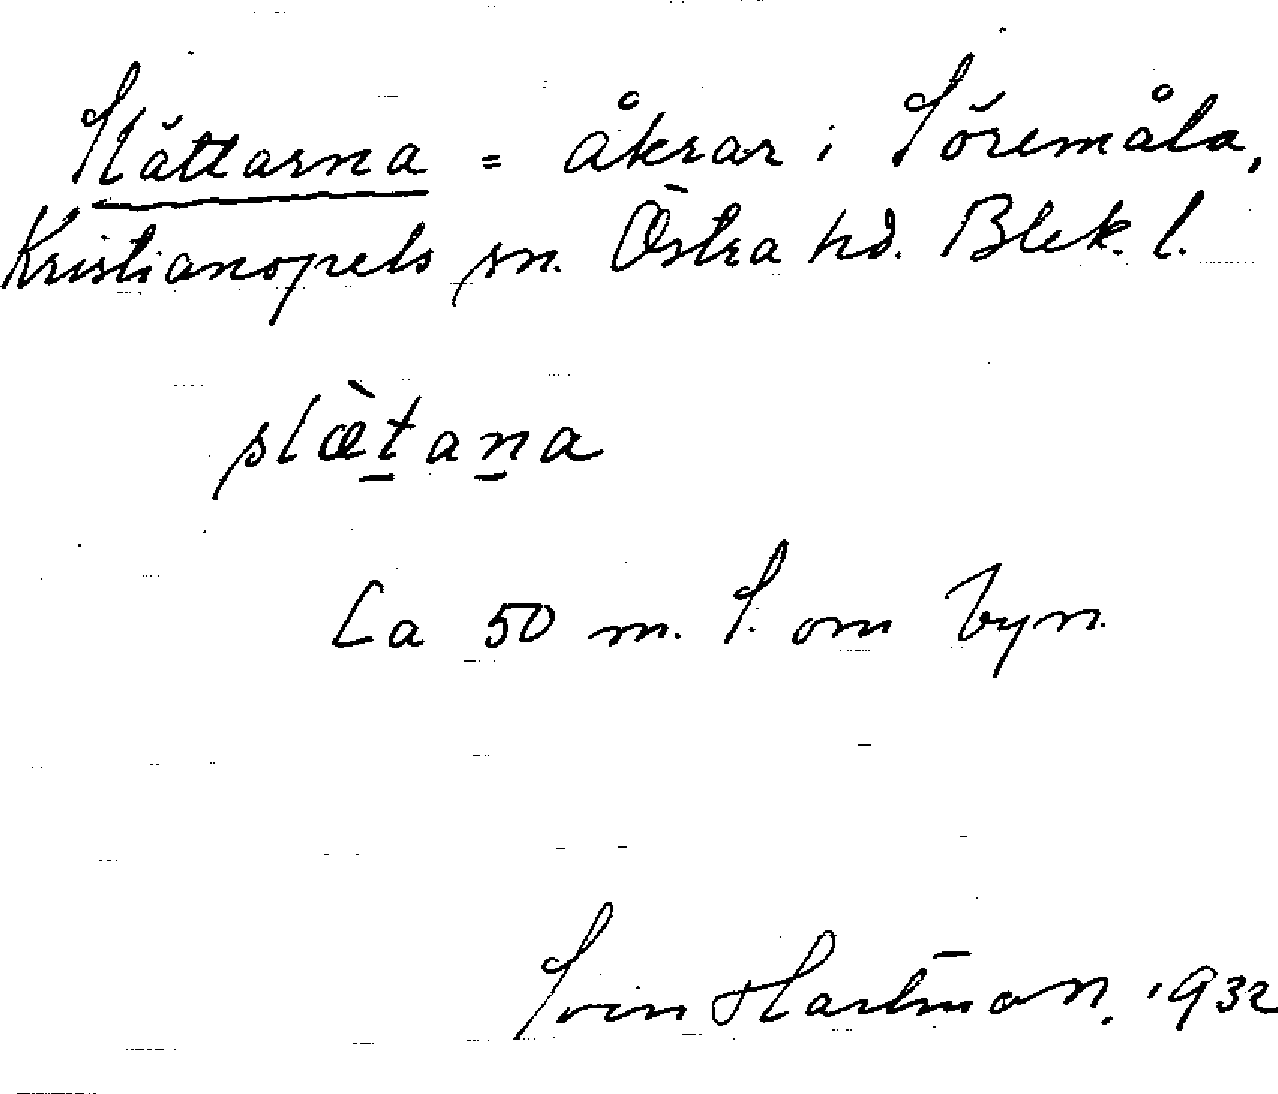 Slättarna = åkrar i Söremåla,
Kristianopels sn. Östra hd. Blek. l.
slæ̀ṯaṉa
Ca 50 m. S. om byn.
Sven Hartman. 1932